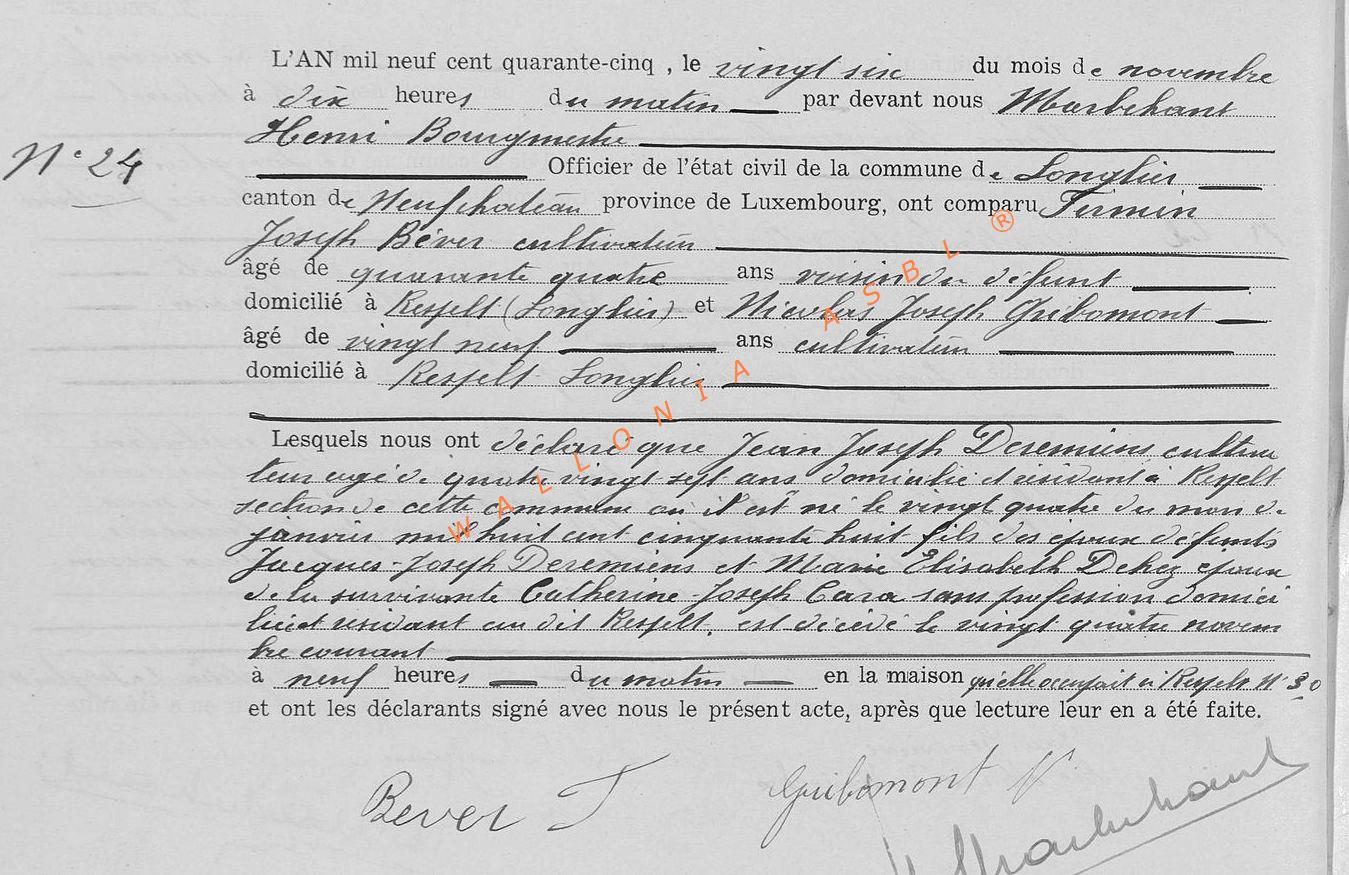 L'AN mil neuf cent quarante-cinq , le vingt six du mois de novembre
à dix heures du matin par devant nous Marbehant
Henri Bourgmestre
N° 24
Officier de l'état civil de la commune de Longlier
canton de Neufchateau province de Luxembourg, ont comparu Firmin
Joseph Béver cultivateur
âgé de quarante quatre ans voisin du défunt
domicilié à Respelt (Longlier) et Nicolas Joseph Guibomont
âgé de vingt neuf ans cultivateur
domicilié à Respelt Longlier
Lesquels nous ont déclaré que Jean Joseph Deremiens cultiva
teur agé de quatre vingt sept ans domicilié et résidant à Respelt
section de cette commune où il est né le vingt quatre du mois de
janvier mil huit cent cinquante huit fils des époux défunts
Jacques-Joseph Deremiens et Marie Elisabeth Dehez époux
de la survivante Catherine-Joseph Cara sans profession domici
liée et résidant au dit Respelt, est décédé le vingt quatre novem
bre courant
à neuf heures du matin en la maison qu'elle occupait à Respelt N° 30
et ont les déclarants signé avec nous le présent acte, après que lecture leur en a été faite.
Bever F
Guibomont N
Marbehant
WALLONIA ASBL ®